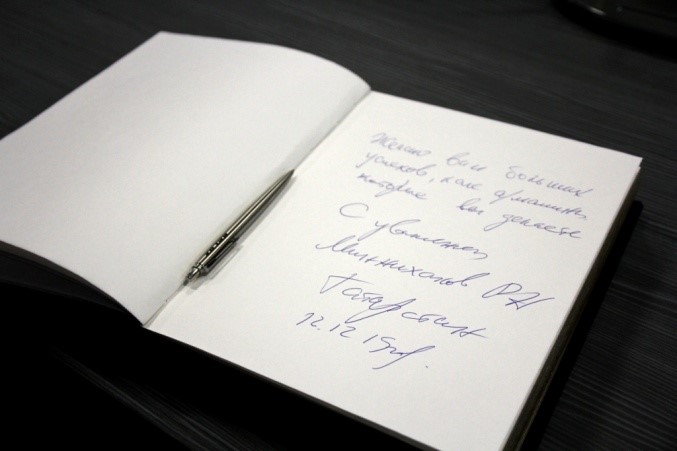 Желаю вам больших
успехов, как и машины,
которые вы делаете
С уважением
Минниханов РН
Татарстан
12.12.19г.